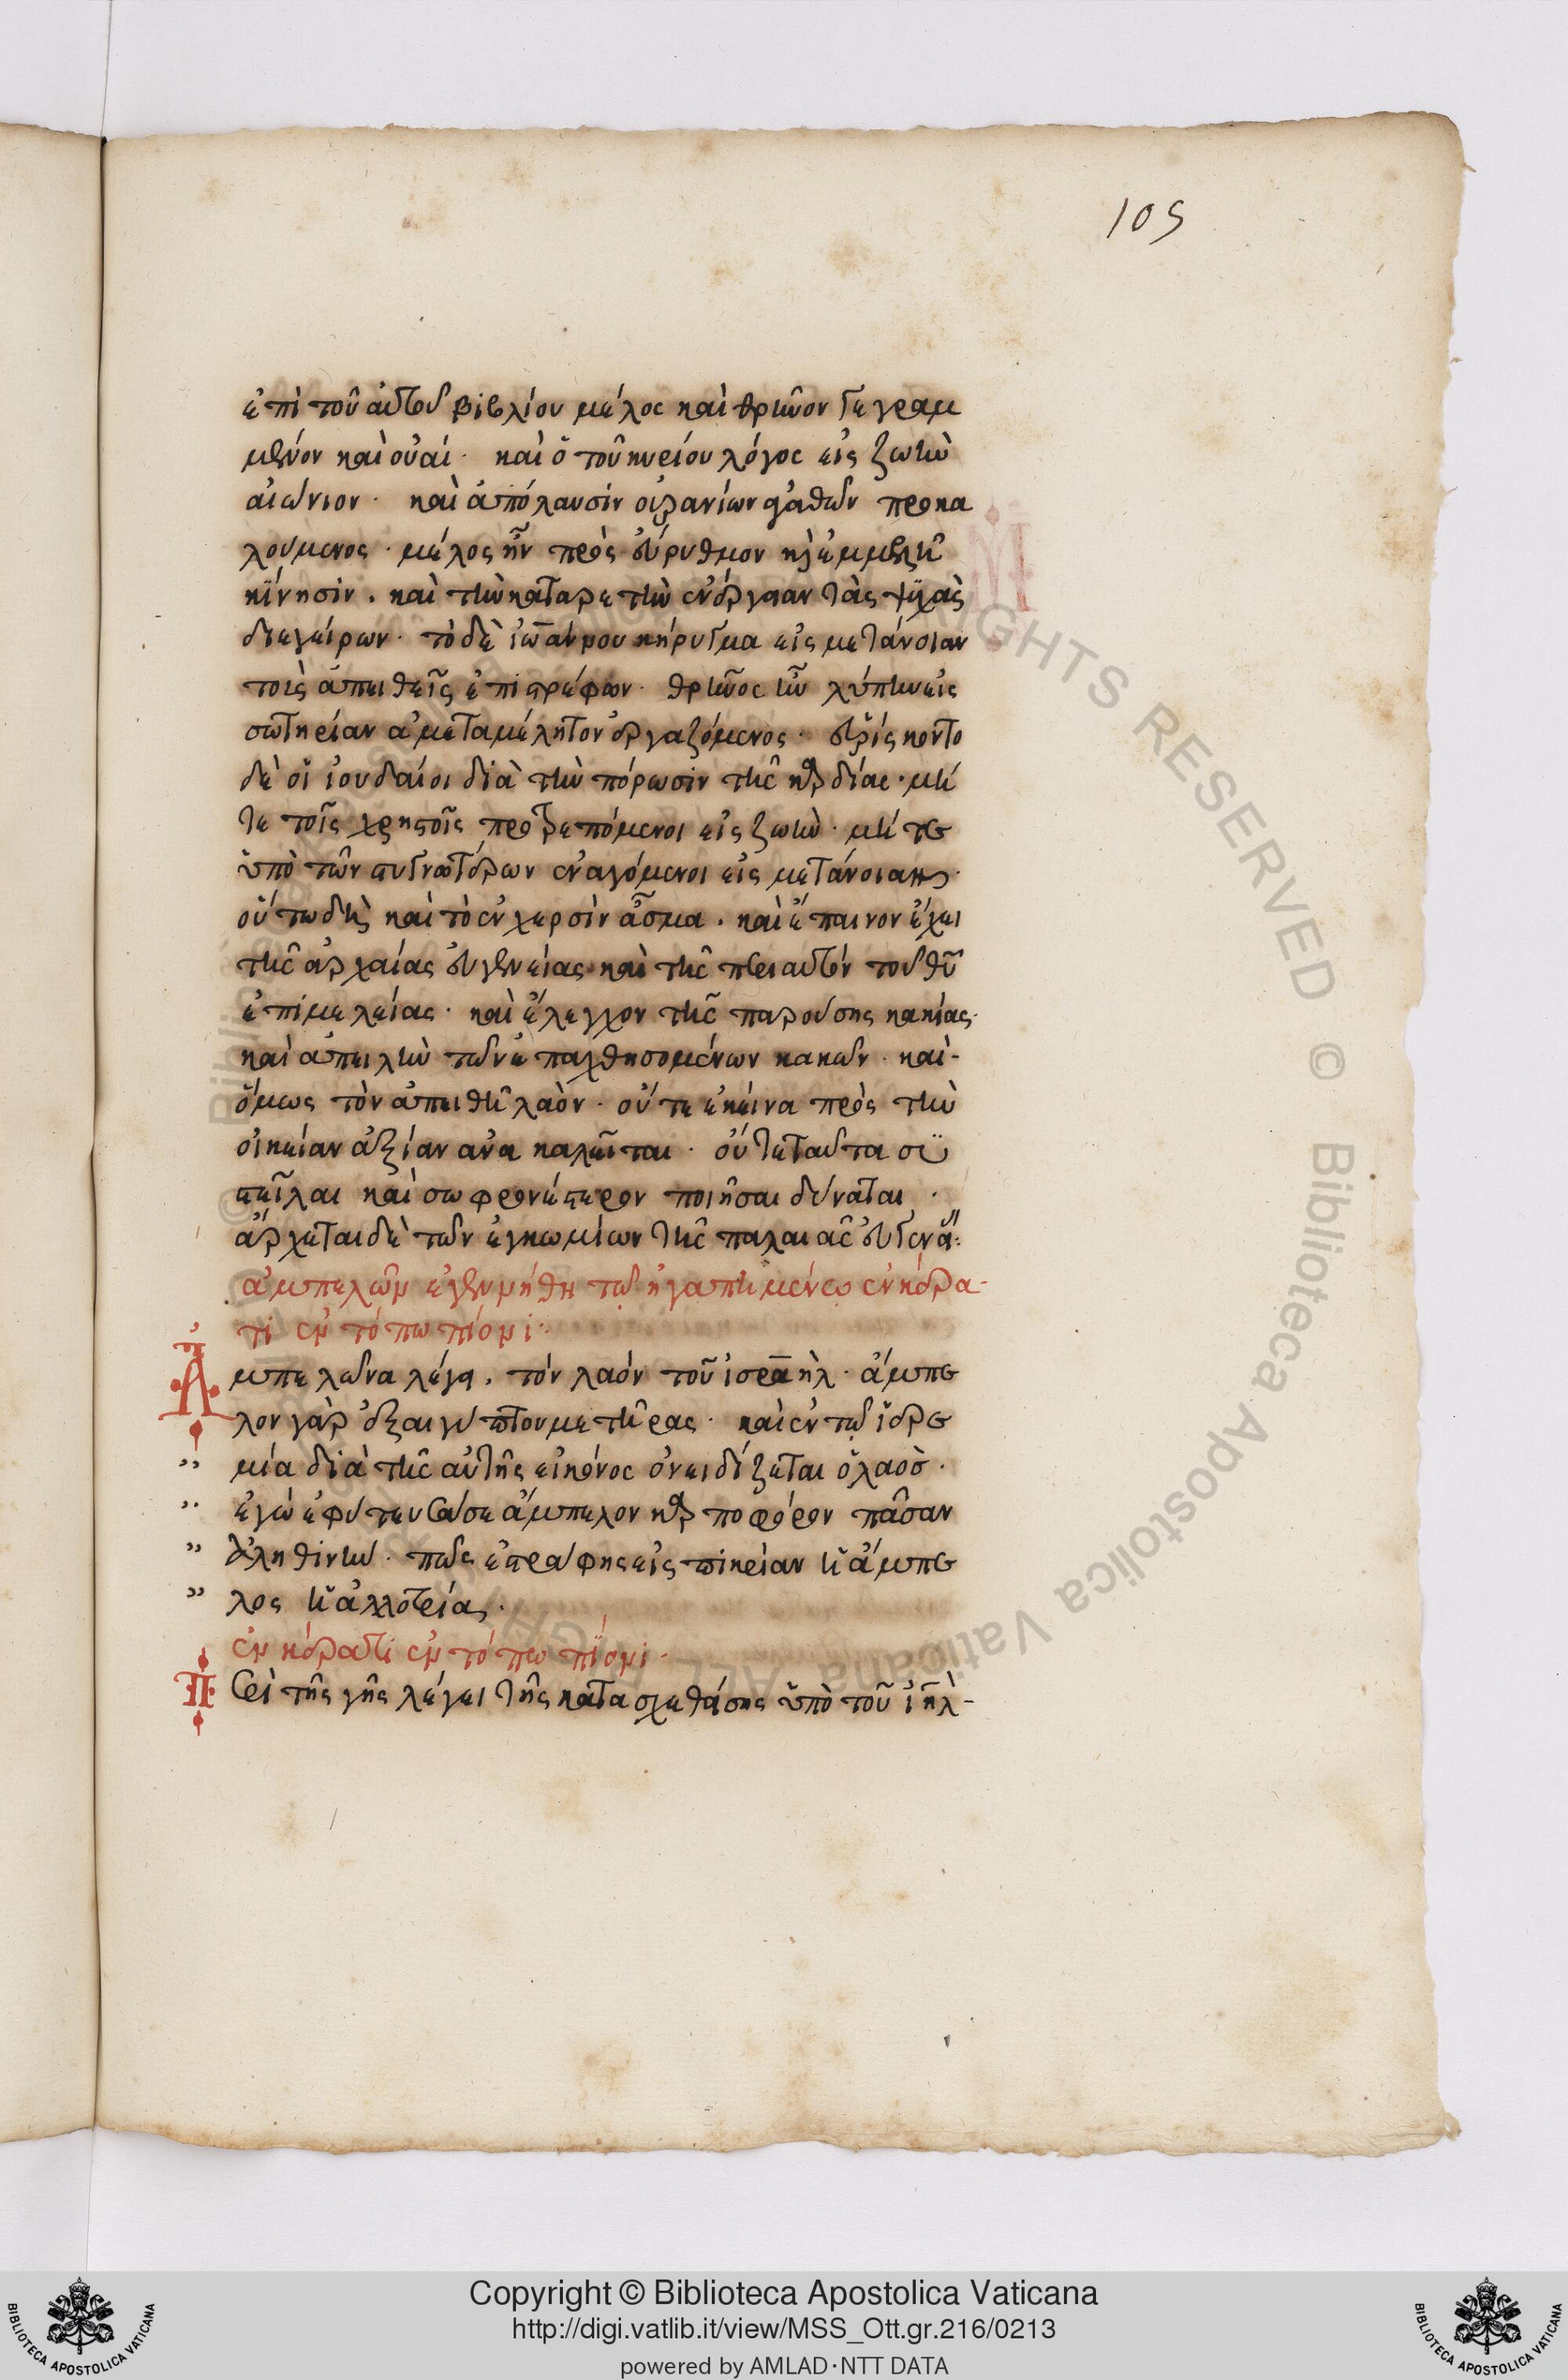 105
ἐπὶ τοῦ αὐτοῦ βιβλίου μέλος καὶ θρῆνον γεγραμ
μένον καὶ οὐαί · καὶ ὁ τοῦ κυρίου λόγος εἰς ζωὴν
αἰώνιον · καὶ ἀπόλαυσιν οὐρανίων ἀγαθῶν προκα
λούμενος · μέλος ἦν πρὸς εὔρυθμον καὶ ἐμμελῆ
κίνησιν · καὶ τὴν κατ ἀρετὴν ἐνέργειαν τὰς ψυχὰς
διεγείρων · τὸ δὲ ἰωάννου κήρυγμα εἰς μετάνοιαν
τοὺς ἀπειθεῖς ἐπιστρέφων · θρῆνος ἦν λύπην εἰς
σωτηρίαν ἀμεταμέλητον ἐργαζόμενος · εὑρίσκοντο
δὲ οἱ ἰουδαίοι διὰ τὴν πόρωσιν τῆς καρδίας · μή
τε τοῖς χρηστοῖς προτρεπόμενοι εἰς ζωὴν · μή τε
ὑπὸ τῶν στυγνοτέρων ἐναγόμενοι εἰς μετάνοιαν ·
οὕτω δὴ καὶ τὸ ἐν χερσὶν ἆσμα · καὶ ἔπαινον ἔχει
τῆς ἀρχαίας εὐγενείας καὶ τῆς περὶ αὐτὸν τοῦ θυ
ἐπιμελείας · καὶ ἔλεγχον τῆς παρούσης κακίας ·
καὶ ἀπειλὴν τῶν ἐπαχθησομένων κακῶν · καὶ-
ὅμως τὸν ἀπειθῆ λαὸν · οὔτε ἐκείνα πρὸς τὴν
οἰκείαν ἀξίαν ἀνακαλεῖται · οὔτε ταῦτα συ
στεῖλαι καὶ σωφρονέστερον ποιῆσαι δύναται ·
ἄρχεται δὲ τῶν ἐγκωμίων τῆς παλαιᾶς εὐγενεί :
ἀμπελὼν ἐγενήθη τῷ ἠγαπημένῳ ἐν κέρα-
τι ἐν τόπω πίονι ·
Ἀμπελῶνα λέγει · τὸν λαὸν τοῦ ἰσραηλ · ἄμπε
λον γὰρ ἐξ αἰγύπτου μετῆρας · καὶ ἐν τῷ ἱερε
μία διὰ τῆς αὐτῆς εἰκόνος ὀνειδίζεται ὁ λαὸς ·
ἐγὼ ἐφύτευσά σε ἄμπελον καρποφόρον πᾶσαν
ἀληθινὴν · πῶς ἐστράφης εἰς πικρίαν ἡ ἄμπε
λος ἡ ἀλλοτρίας ·
ἐν κέρατι ἐν τόπω πίονι ·
Περὶ τῆς γῆς λέγει τῆς κατασχεθείσης ὑπὸ τοῦ ἰηλ-
© Biblioteca Apostolica Vaticana ALL RIGHTS RESERVED
Copyright © Biblioteca Apostolica Vaticana
http://digi.vatlib.it/view/MSS_Ott.gr.216/0213
powered by AMLAD·NTT DATA
BIBLIOTECA APOSTOLICA VATICANA
BIBLIOTECA APOSTOLICA VATICANA